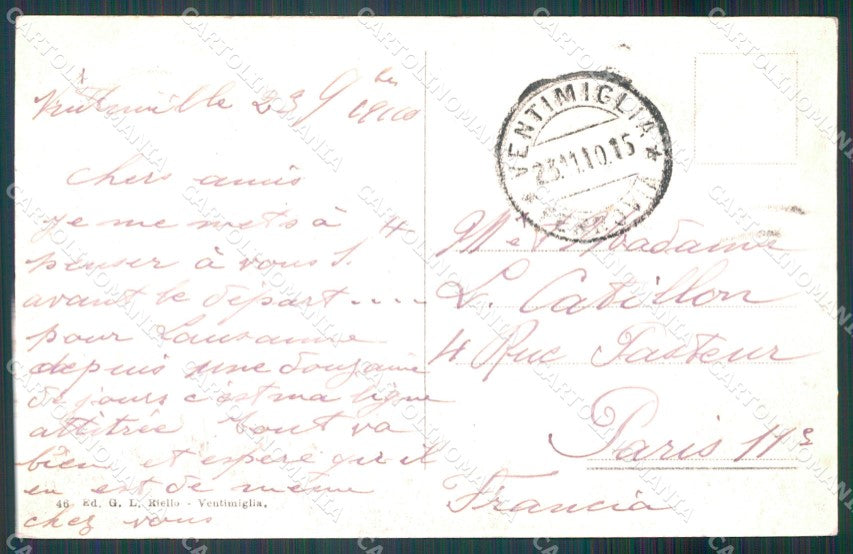 Vintimille 23 9bre 1910
Chers amis
Je me mets à
penser à vous 4
avant le départ....
pour Lausanne
depuis une douzaine
de jours c'est ma ligne
attitrée tout va
bien et espère qu'il
en est de même
chez vous
46 Ed. G. L. Riello - Ventimiglia.
VENTIMIGLIA
23.11.10.15
GENOVA
M et Madame
L. Catillon
4 Rue Pasteur
Paris 11e
Francia
CARTOLINOMANIA